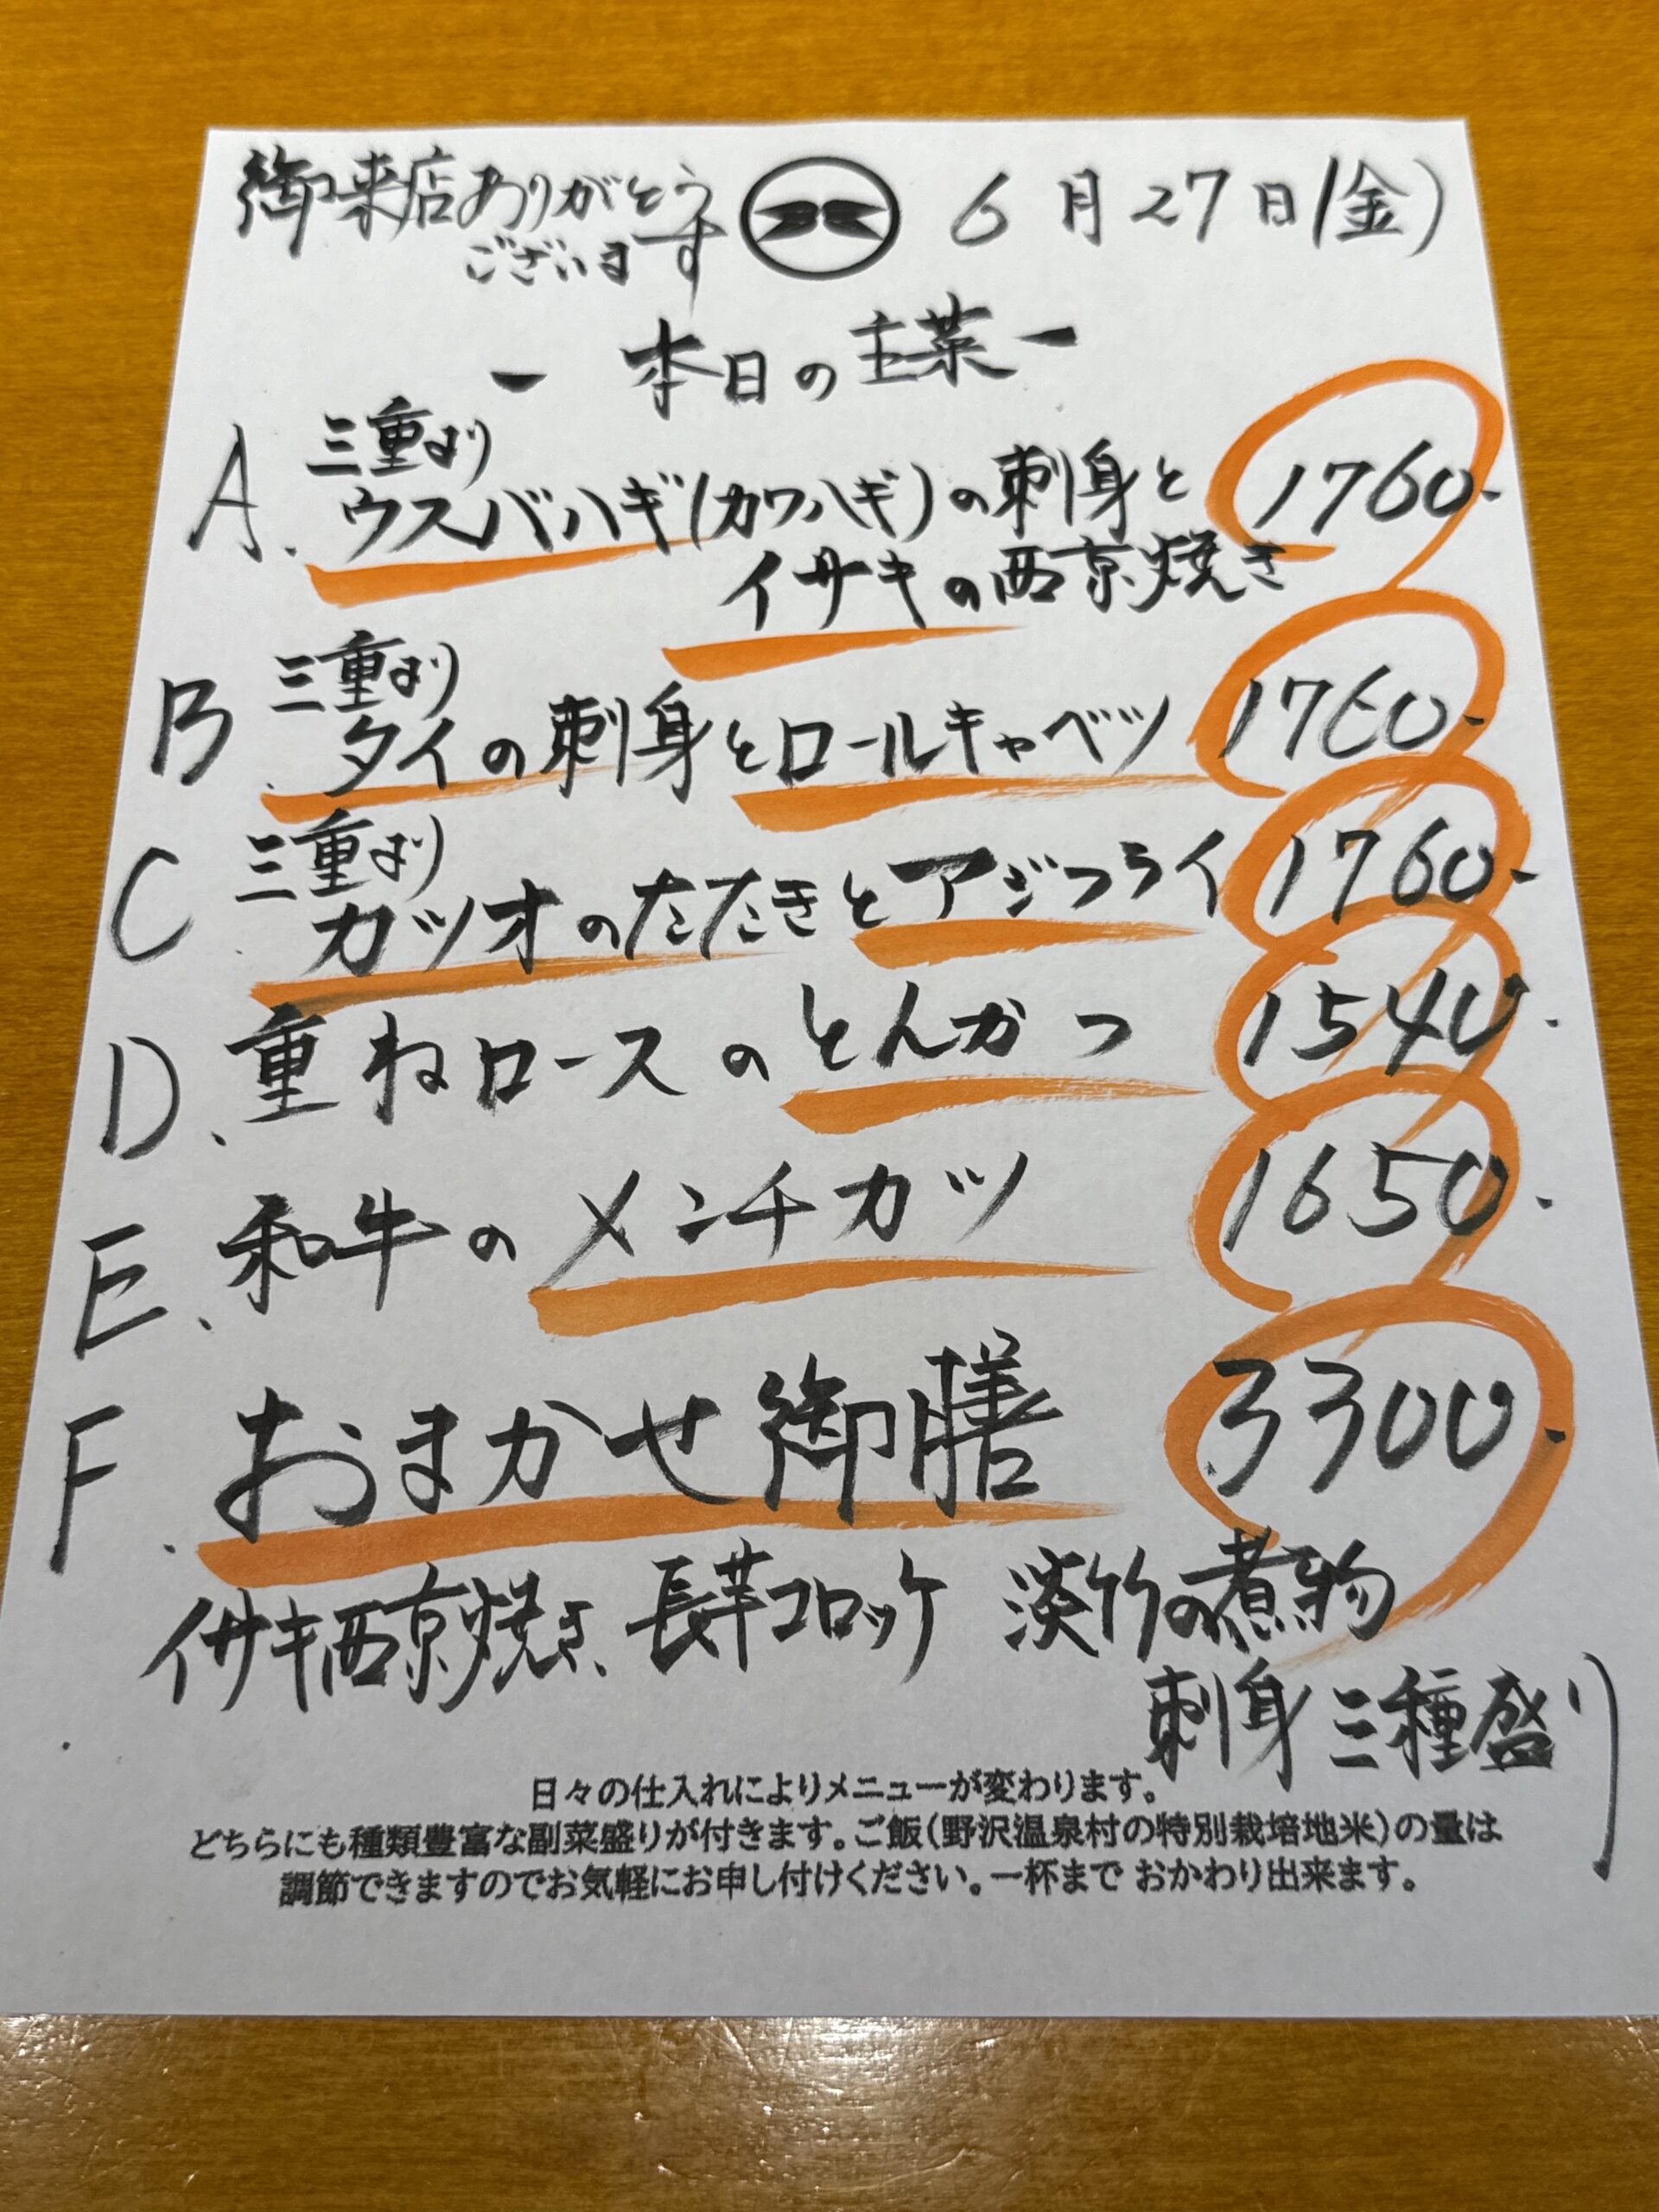 御来店ありがとう
ございます
6月27日(金)
ー 本日の主菜 ー
三重より
A. ウスバハギ(カワハギ)の刺身と 1760.-
イサキの西京焼き
三重より
B. タイの刺身とロールキャベツ 1760.-
三重より
C. カツオのたたきとアジフライ 1760.-
D. 重ねロースのとんかつ 1540.
E. 和牛のメンチカツ 1650.
F. おまかせ御膳 3300.
イサキ西京焼き、長芋コロッケ 淡竹の煮物
刺身三種盛り
日々の仕入れによりメニューが変わります。
どちらにも種類豊富な副菜盛りが付きます。ご飯(野沢温泉村の特別栽培地米)の量は
調節できますのでお気軽にお申し付けください。一杯まで おかわり出来ます。